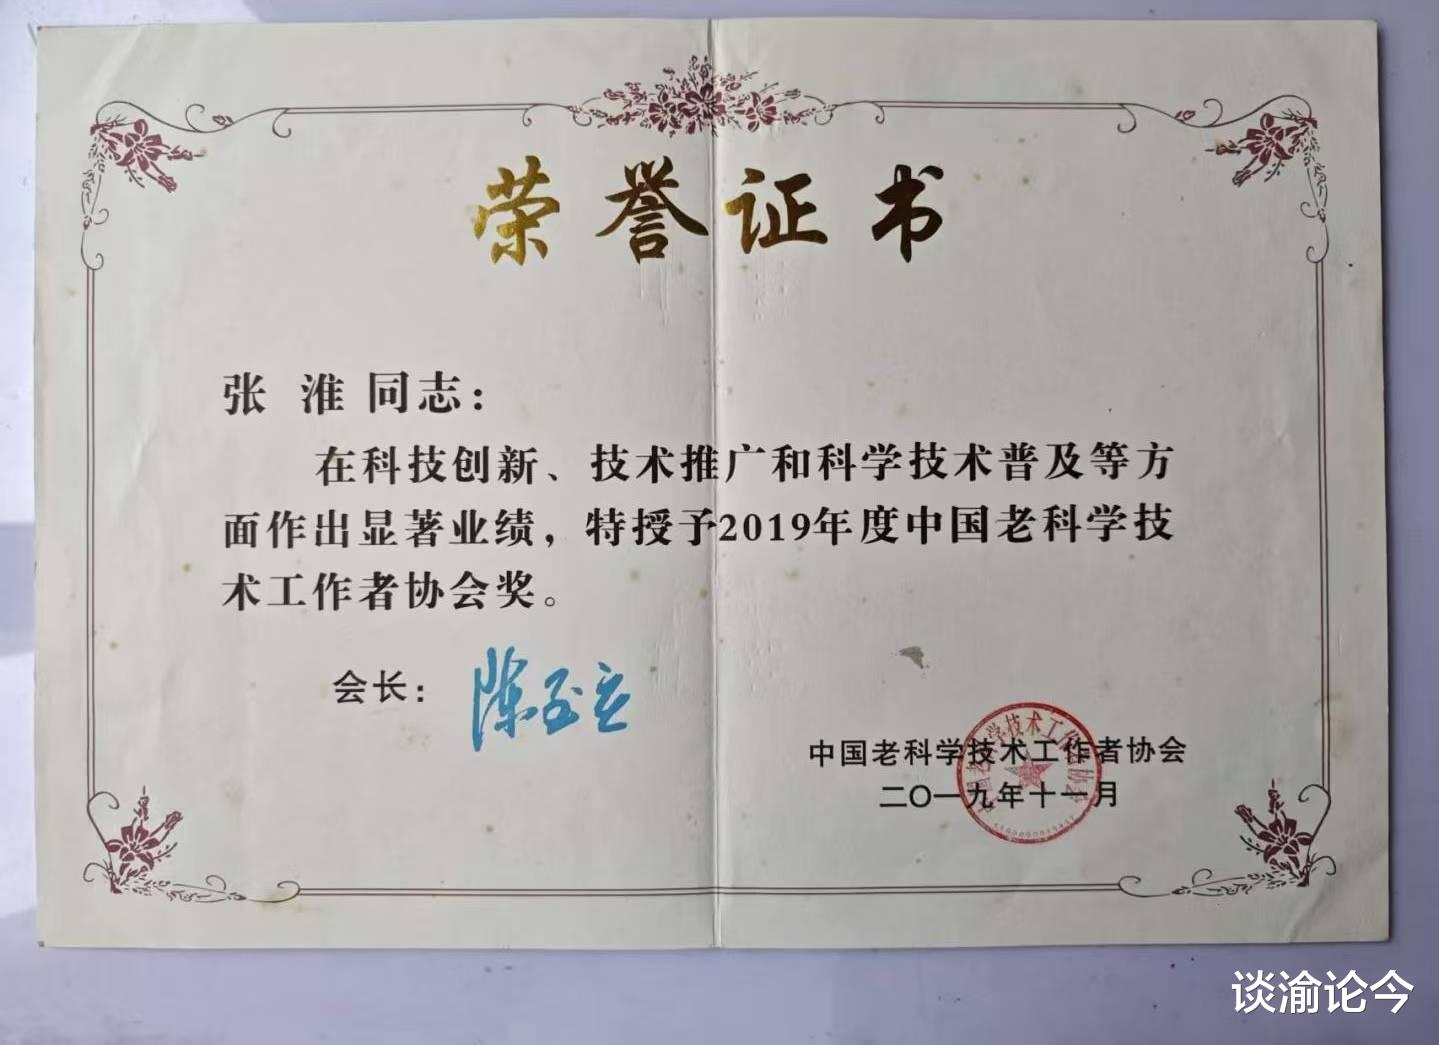 荣誉证书
张 淮 同志：
在科技创新、技术推广和科学技术普及等方
面作出显著业绩，特授予2019年度中国老科学技
术工作者协会奖。
会长：陈至立
中国老科学技术工作者协会
二〇一九年十一月
谈渝论今